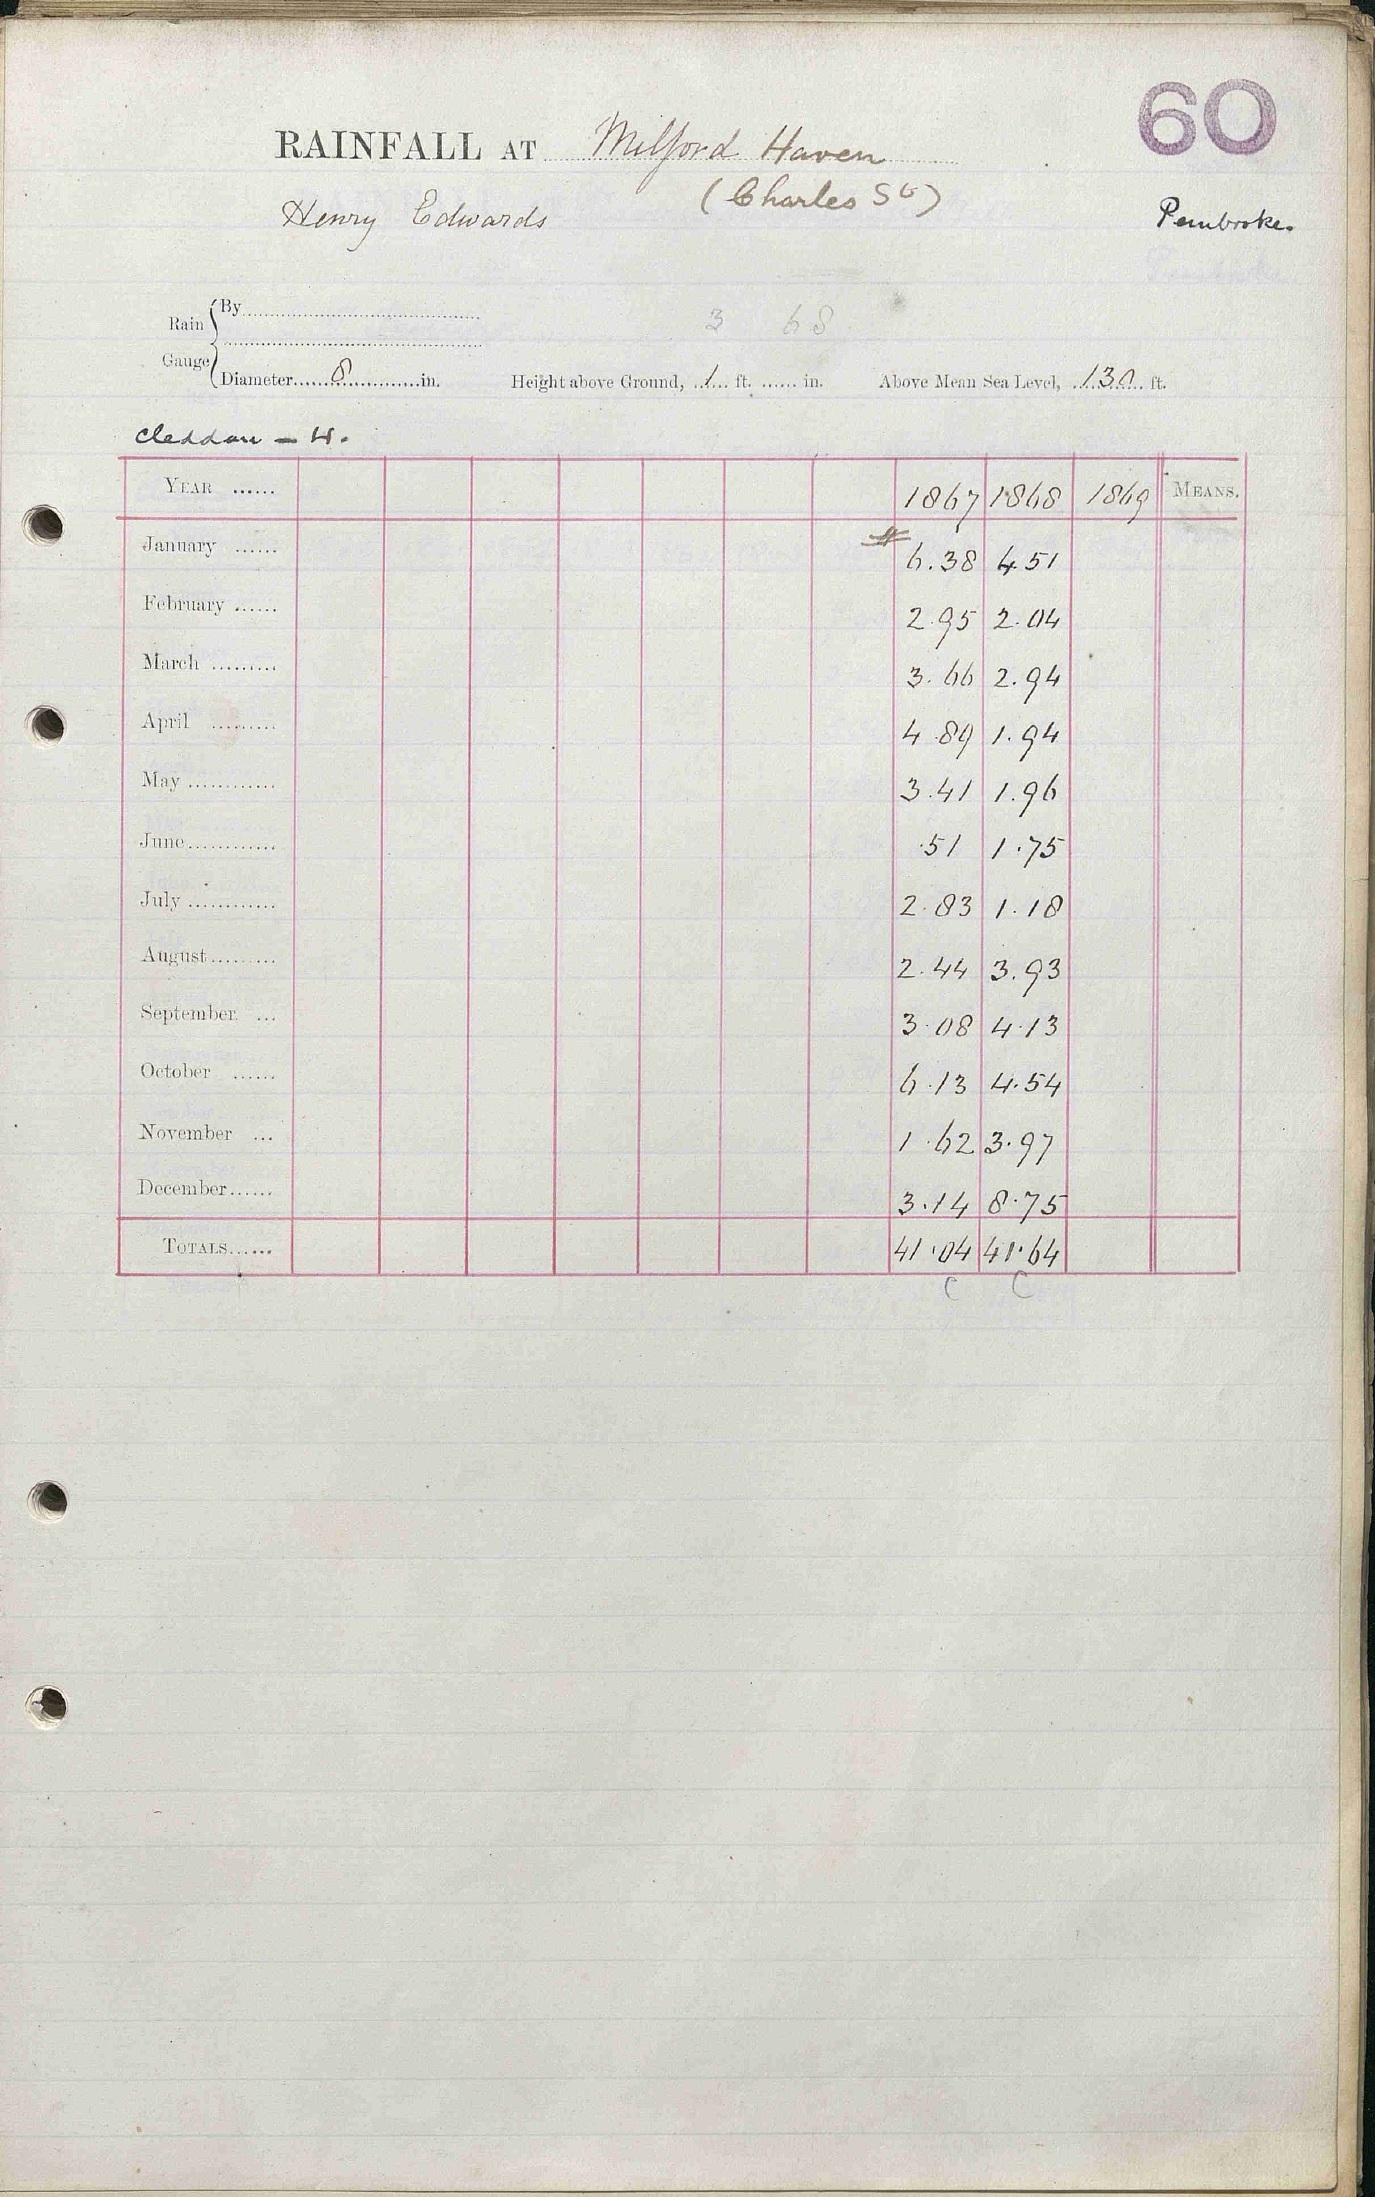 60
RAINFALL AT Milford Haven
(Charles St)
Henry Edwards
Pembroke.
Rain Gauge
By
3 68
Diameter 8 in. Height above Ground, 1 ft. in. Above Mean Sea Level, 130 ft.
Cleddau - H.
YEAR 1867 1868 1869 MEANS.
January 6.38 4.51
February 2.95 2.04
March 3.66 2.94
April 4.89 1.94
May 3.41 1.96
June .51 1.75
July 2.83 1.18
August 2.44 3.93
September 3.08 4.13
October 6.13 4.54
November 1.62 3.97
December 3.14 8.75
TOTALS 41.04 41.64
C C